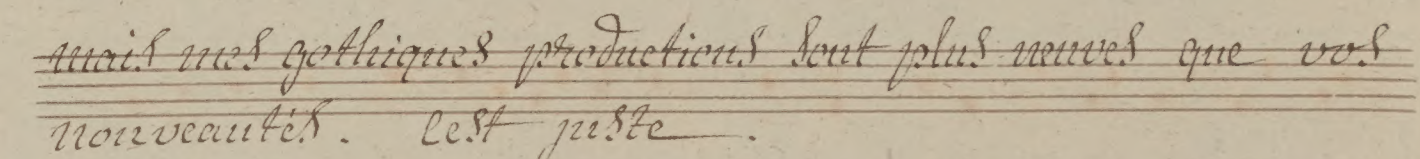 mais mes gothiques productions sont plus neuves que vos
nouveautés. C'est juste.